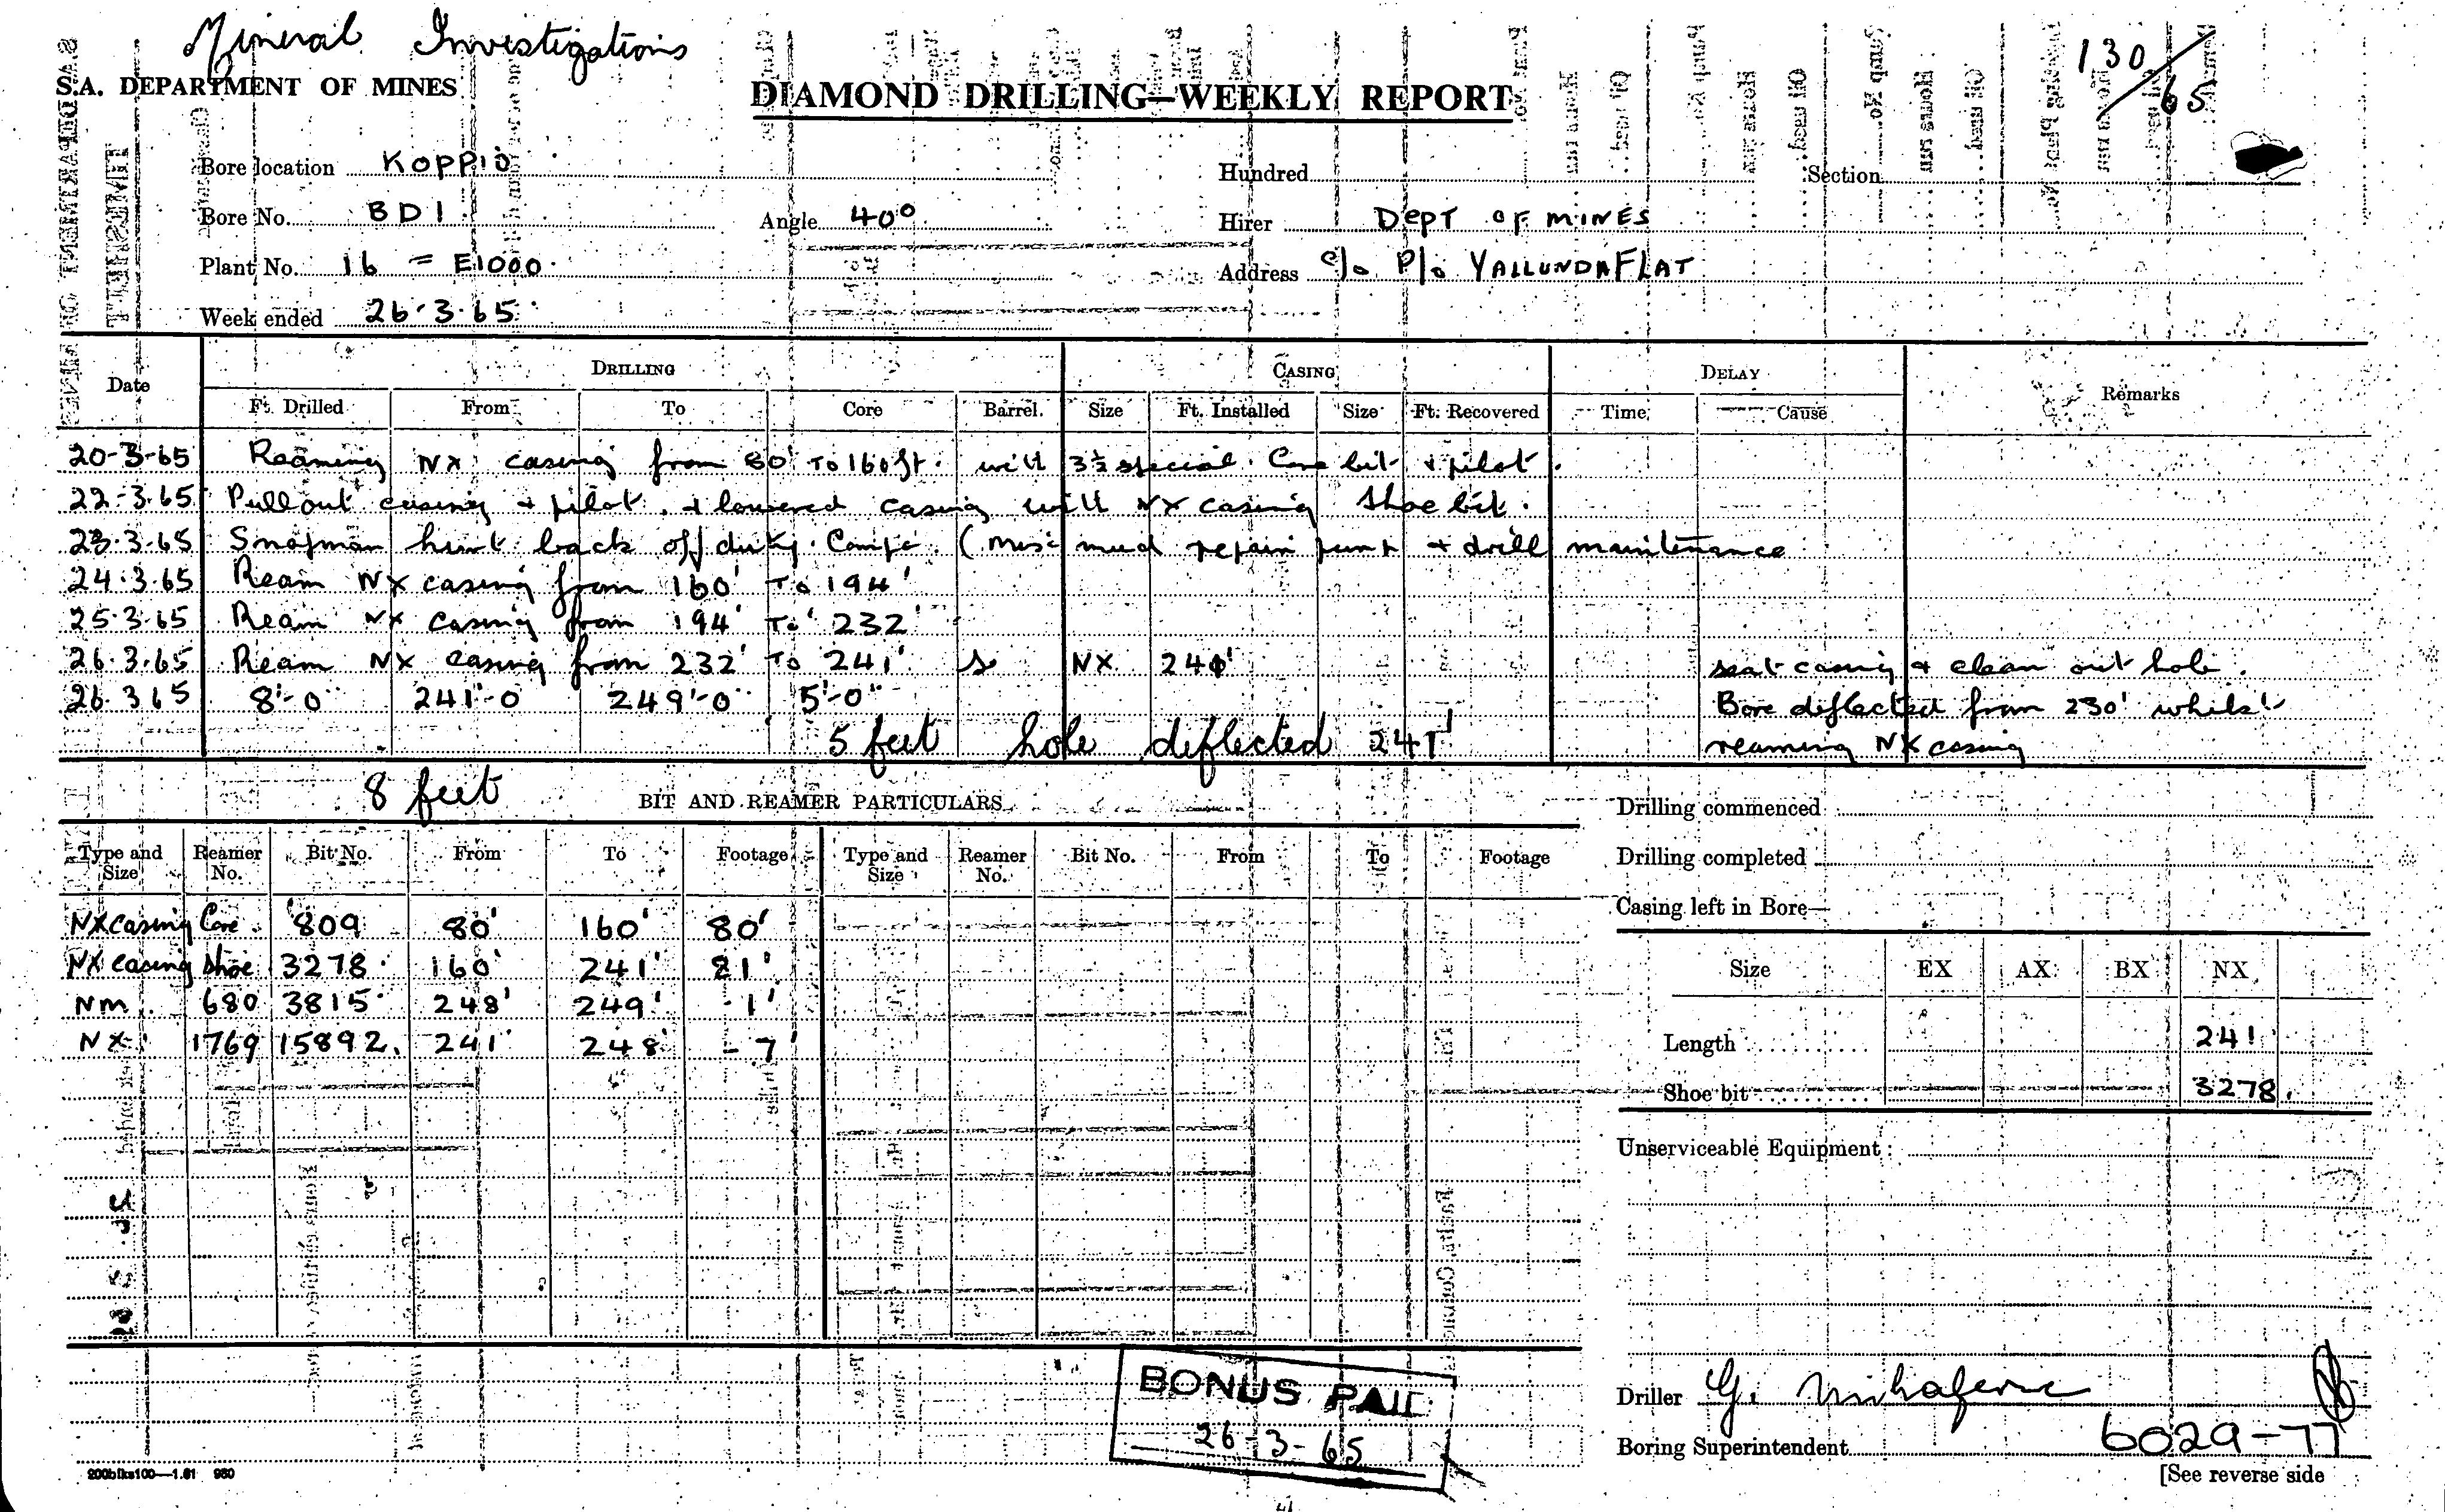 Mineral Investigations
S.A. DEPARTMENT OF MINES
DIAMOND DRILLING—WEEKLY REPORT
130/65
Bore location KOPPIO Hundred Section
Bore No. BD1 Angle 40° Hirer DEPT OF MINES
Plant No. 16 = E1000. Address c/o P/o YALLUNDA FLAT
Week ended 26.3.65
Date DRILLING CASING DELAY Remarks
Ft. Drilled From To Core Barrel. Size Ft. Installed Size Ft. Recovered Time Cause
20-3-65 Reaming NX casing from 80' To 160 ft. with 3½ special. Core bit + pilot.
22-3.65 Pull out casing + pilot. + lowered casing with NX casing shoe bit.
23.3.65 hurt back off duty. mud repair pump + drill maintenance
24.3.65 Ream NX casing from 160' To 194'
25.3.65 Ream NX casing from 194' To 232'
26.3.65 Ream NX casing from 232' To 241' NX 240' seat casing + clean out hole.
26.3 65 8'-0" 241'-0 249'-0" 5'-0" Bore deflected from 230' whilst
5 feet hole deflected 241' reaming NX casing
8 feet
BIT AND REAMER PARTICULARS
Drilling commenced
Type and Size Reamer No. Bit No. From To Footage Type and Size Reamer No. Bit No. From To Footage
Drilling completed
Casing left in Bore—
NX casing Core 809 80' 160' 80'
NX casing shoe 3278 160' 241' 81'
NM 680 3815 248' 249' -1'
NX 1769 15892. 241' 248' -7'
Size EX AX BX NX
Length 241
Shoe bit 3278.
Unserviceable Equipment
BONUS PAID
26-3-65
Driller G.
Boring Superintendent 6029-77
200blks100—1.61 980
[See reverse side